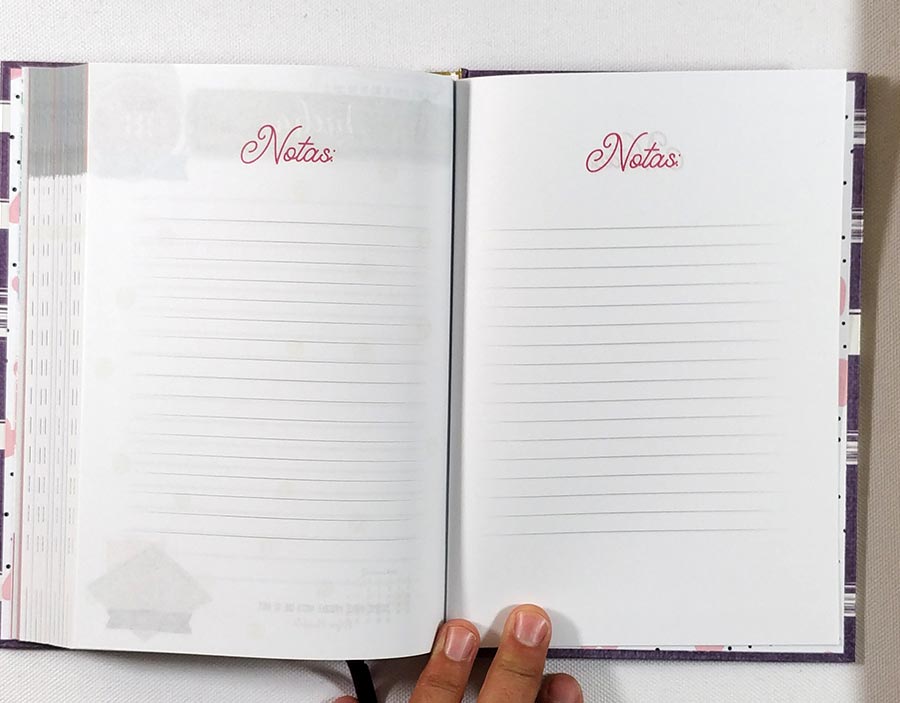 Notas:
Notas: